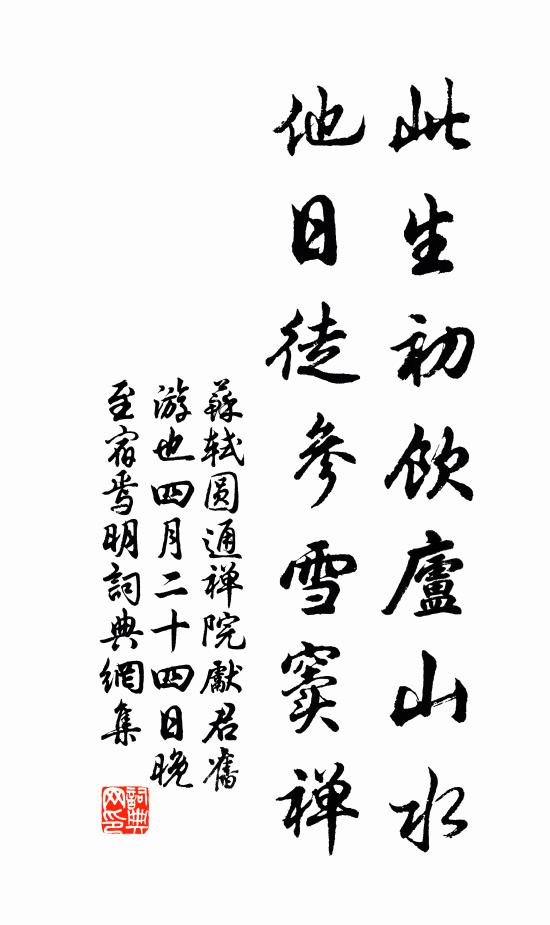 此生初飲廬山水
他日徒參雪竇禅
蘇軾圆通禅院獻君舊
游也四月二十四日晚
至宿焉明詞典網集
詞典网印